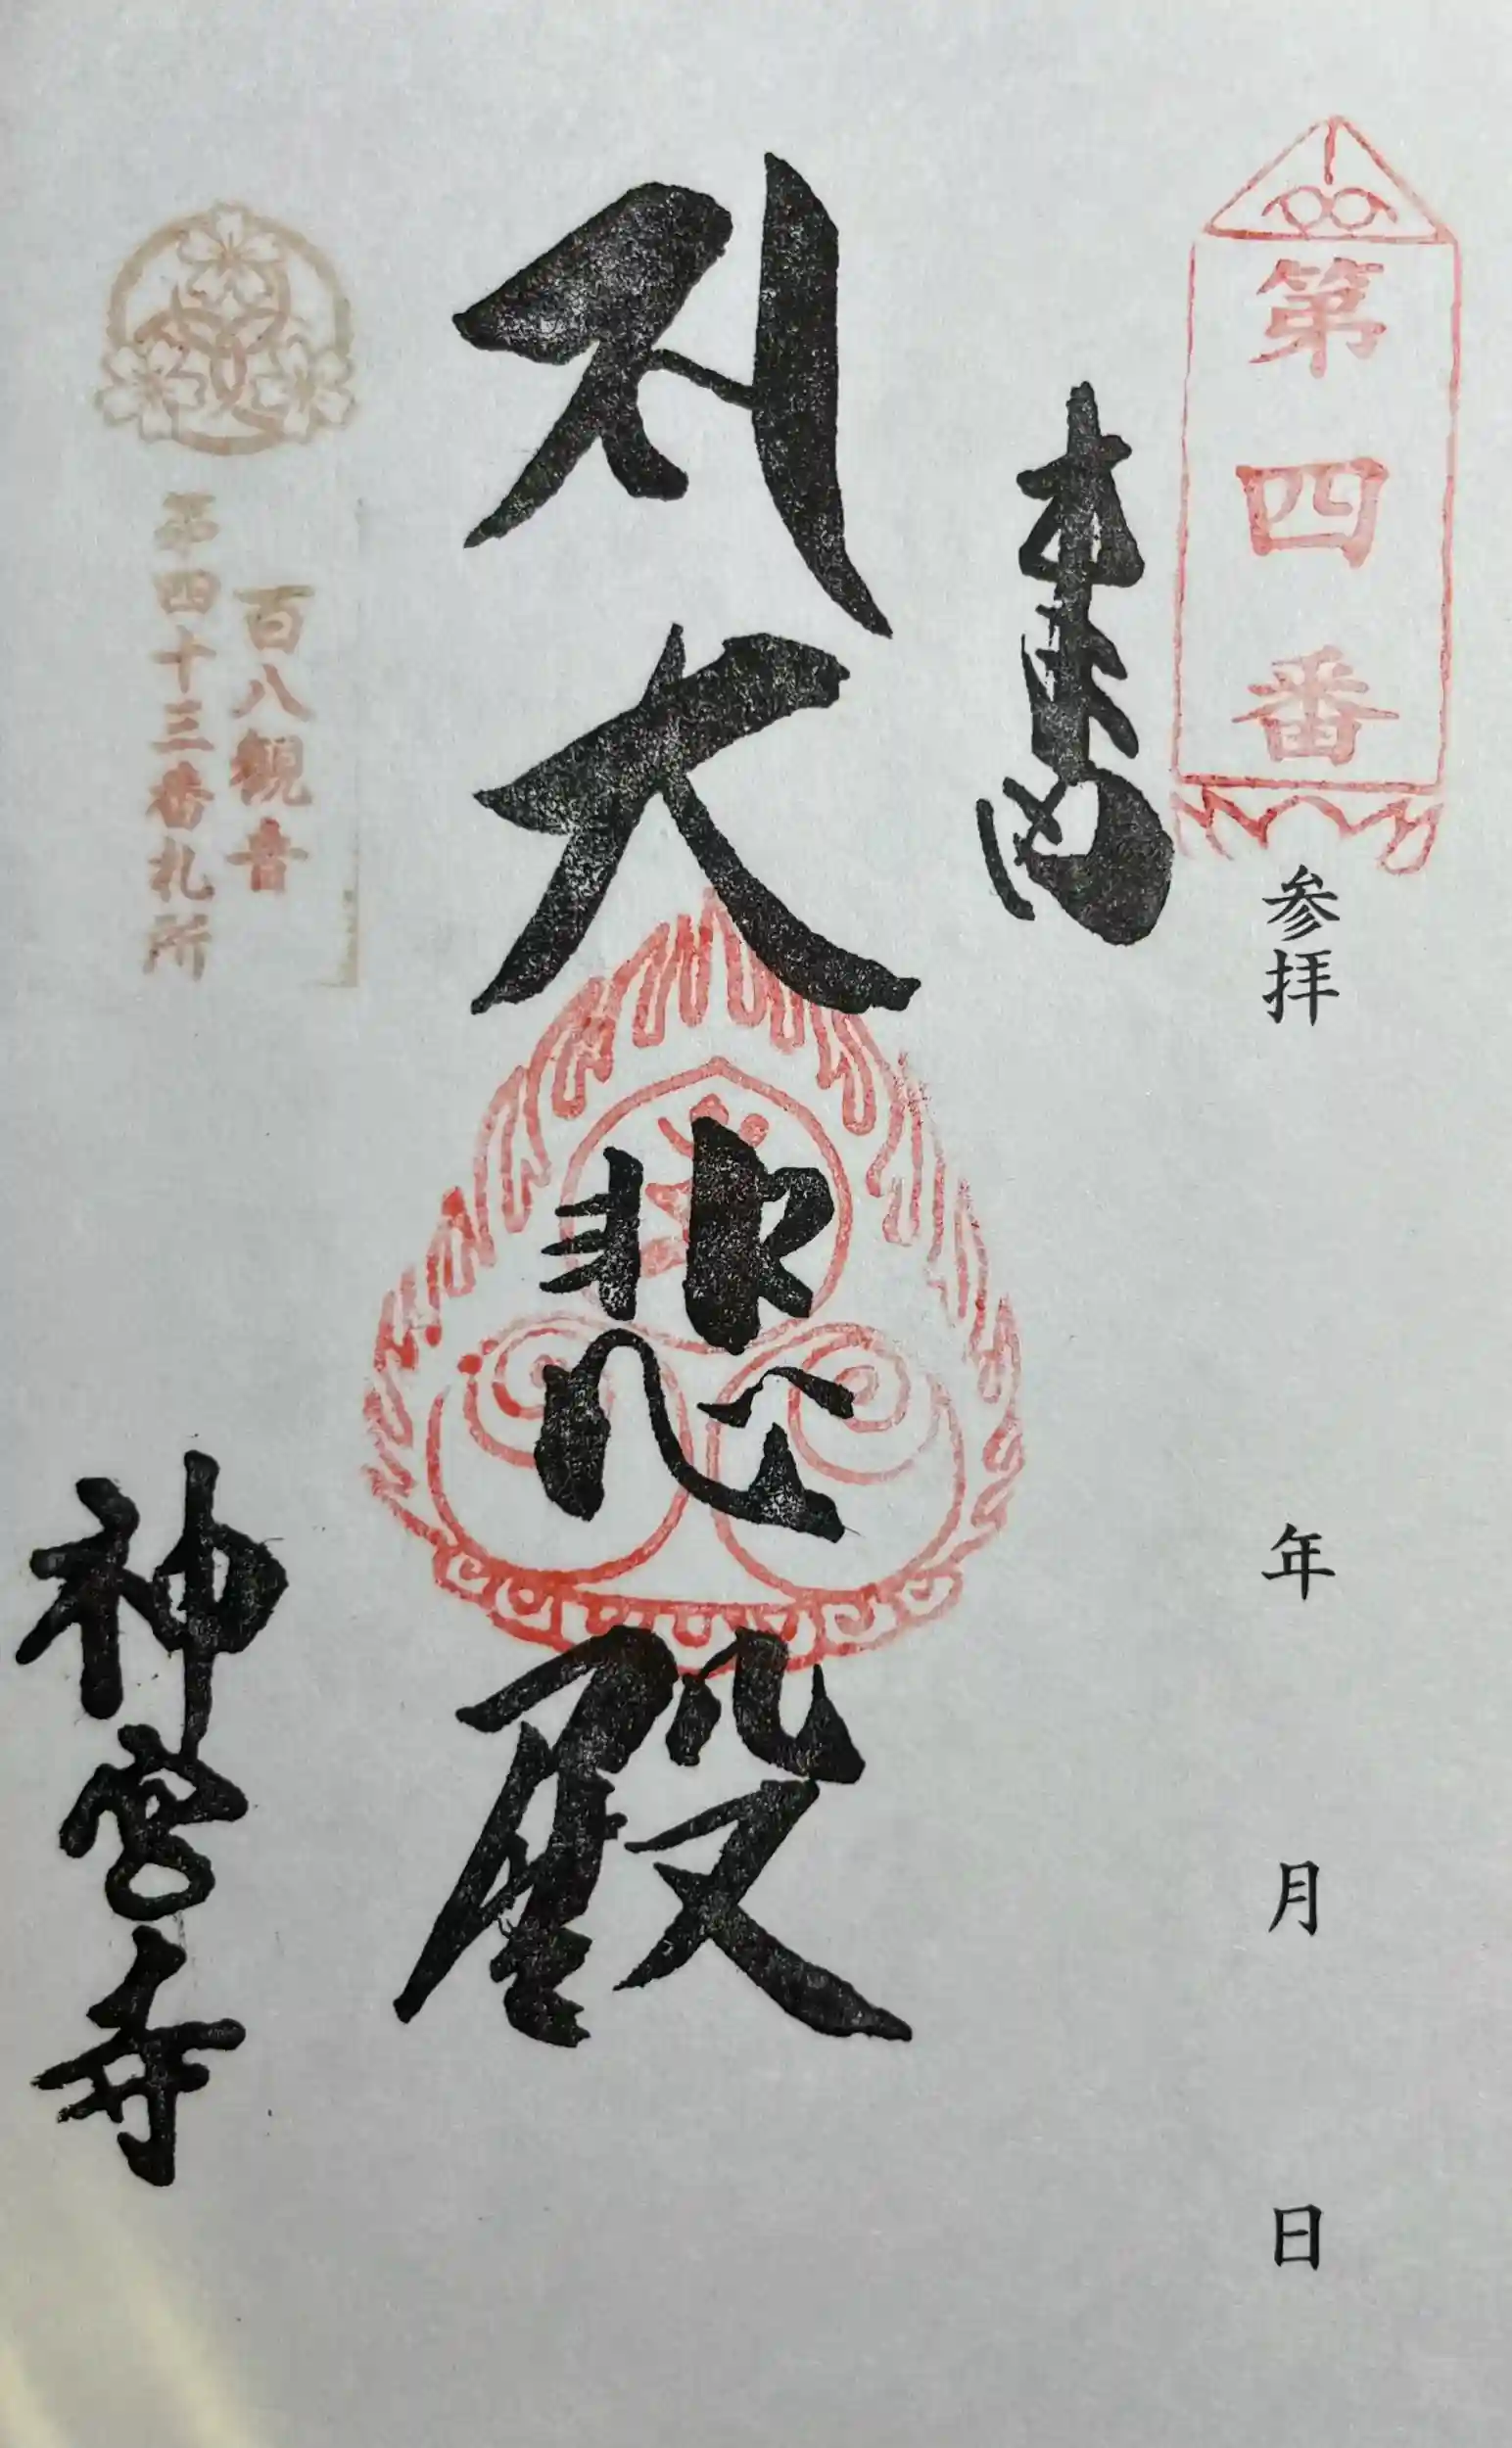 第四番
参拝 年 月 日
奉拝
大悲殿
百八観音
第四十三番札所
神宮寺